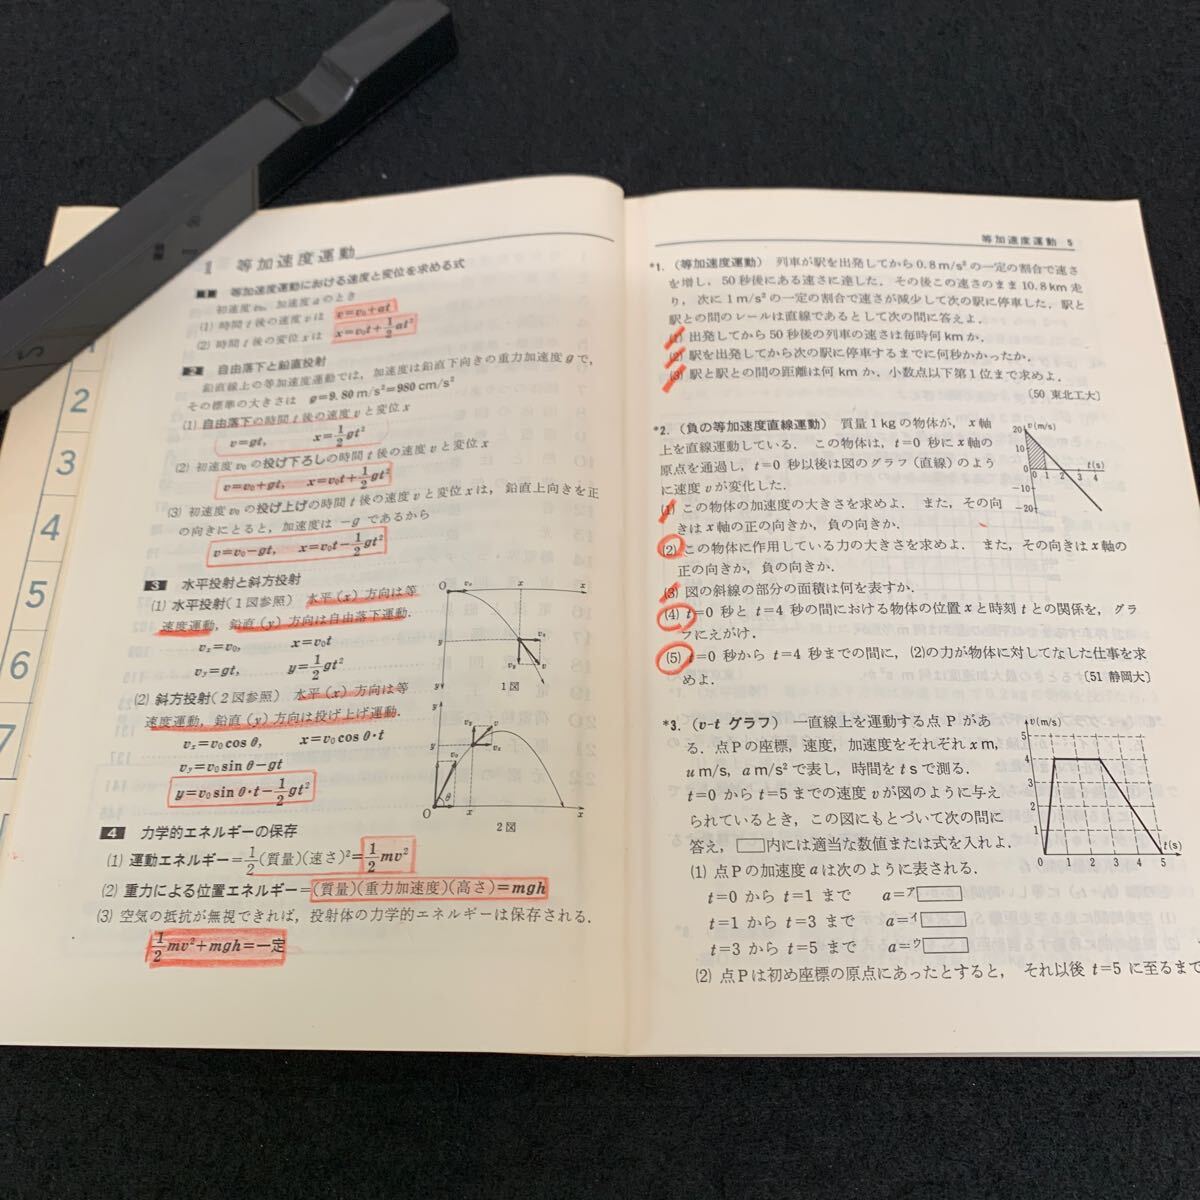 1 等加速度運動
1 等加速度運動における速度と変位を求める式
初速度v₀，加速度aのとき
(1) 時間t後の速度vは v=v₀+at
(2) 時間t後の変位xは x=v₀t+1/2at²
2 自由落下と鉛直投射
鉛直線上の等加速度運動では，加速度は鉛直下向きの重力加速度gで，
その標準の大きさは g=9.80m/s²=980cm/s²
(1) 自由落下の時間t後の速度vと変位x
v=gt, x=1/2gt²
(2) 初速度v₀の投げ下ろしの時間t後の速度vと変位x
v=v₀+gt, x=v₀t+1/2gt²
(3) 初速度v₀の投げ上げの時間t後の速度vと変位xは，鉛直上向きを正
の向きにとると，加速度は −g であるから
v=v₀−gt, x=v₀t−1/2gt²
3 水平投射と斜方投射
(1) 水平投射(1図参照) 水平(x)方向は等
速度運動，鉛直(y)方向は自由落下運動．
vₓ=v₀, x=v₀t
v_y=gt, y=1/2gt²
(2) 斜方投射(2図参照) 水平(x)方向は等
速度運動，鉛直(y)方向は投げ上げ運動．
vₓ=v₀cosθ, x=v₀cosθ・t
v_y=v₀sinθ−gt
y=v₀sinθ・t−1/2gt²
O v₀ x x
y vₓ
v_y v
y 1図
y
y v_y v vₓ
v₀
θ
O x x
2図
4 力学的エネルギーの保存
(1) 運動エネルギー=1/2(質量)(速さ)²=1/2mv²
(2) 重力による位置エネルギー=(質量)(重力加速度)(高さ)=mgh
(3) 空気の抵抗が無視できれば，投射体の力学的エネルギーは保存される．
1/2mv²+mgh=一定
2
3
4
5
6
7
等加速度運動 5
*1．(等加速度運動) 列車が駅を出発してから0.8m/s²の一定の割合で速さ
を増し，50秒後にある速さに達した．その後この速さのまま10.8km走
り，次に1m/s²の一定の割合で速さが減少して次の駅に停車した．駅と
駅との間のレールは直線であるとして次の間に答えよ．
(1) 出発してから50秒後の列車の速さは毎時何kmか．
(2) 駅を出発してから次の駅に停車するまでに何秒かかったか．
(3) 駅と駅との間の距離は何kmか．小数点以下第1位まで求めよ．
〔50 東北工大〕
*2．(負の等加速度直線運動) 質量1kgの物体が，x軸
上を直線運動している．この物体は，t=0秒にx軸の
原点を通過し，t=0秒以後は図のグラフ(直線)のよう
に速度vが変化した．
(1) この物体の加速度の大きさを求めよ．また，その向
きはx軸の正の向きか，負の向きか．
(2) この物体に作用している力の大きさを求めよ．また，その向きはx軸の
正の向きか，負の向きか．
(3) 図の斜線の部分の面積は何を表すか．
(4) t=0秒とt=4秒の間における物体の位置xと時刻tとの関係を，グラ
フにえがけ．
(5) t=0秒からt=4秒までの間に，(2)の力が物体に対してなした仕事を求
めよ． 〔51 静岡大〕
20 v(m/s)
10
t(s)
0 1 2 3 4
−10
−20
*3．(v-t グラフ) 一直線上を運動する点Pがあ
る．点Pの座標，速度，加速度をそれぞれxm，
um/s，am/s²で表し，時間をtsで測る．
t=0からt=5までの速度vが図のように与え
られているとき，この図にもとづいて次の間に
答え，□内には適当な数値または式を入れよ．
v(m/s)
5
4
3
2
1
0 1 2 3 4 5 t(s)
(1) 点Pの加速度aは次のように表される．
t=0からt=1まで a=ア□
t=1からt=3まで a=イ□
t=3からt=5まで a=ウ□
(2) 点Pは初め座標の原点にあったとすると，それ以後t=5に至るまで